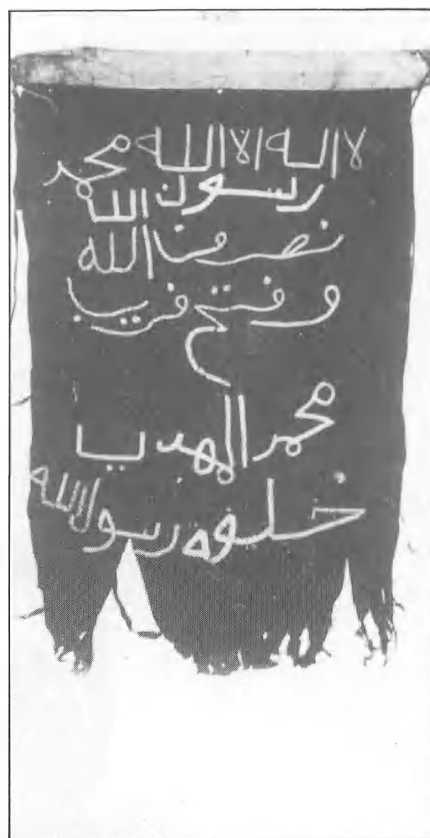 لا اله الا الله محمد
رسول الله
نصر من الله
و فتح قريب
محمد المهدي
خليفة رسول الله